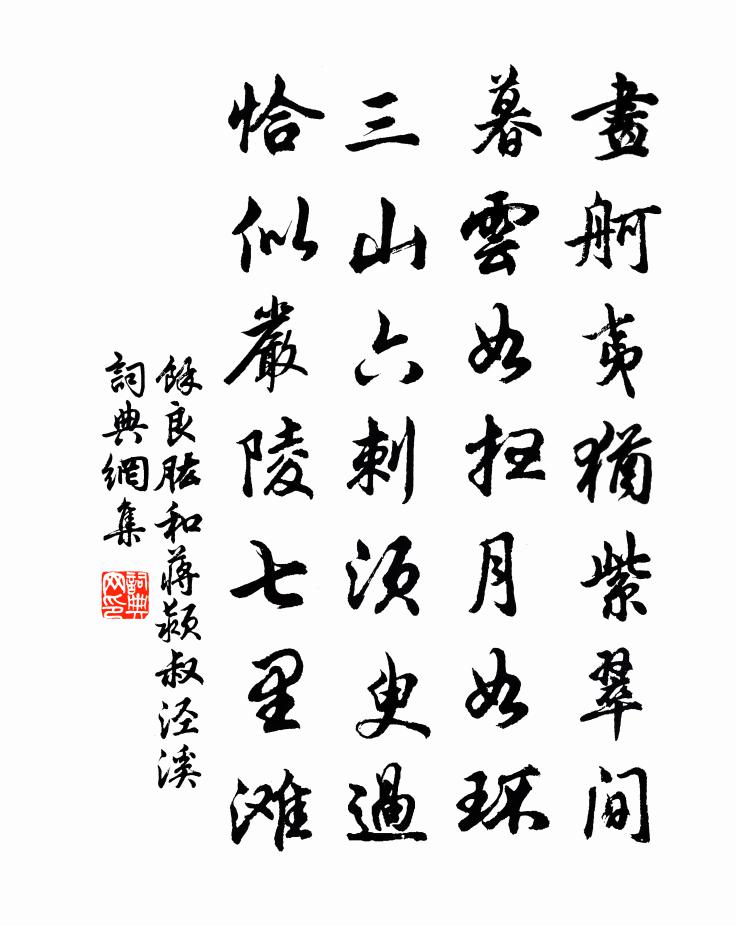 畫舸夷猶紫翠間
暮雲如扫月如环
三山六刺須臾過
恰似嚴陵七里滩
餘良肱和蒋颖叔泾溪
詞典網集
詞典网印